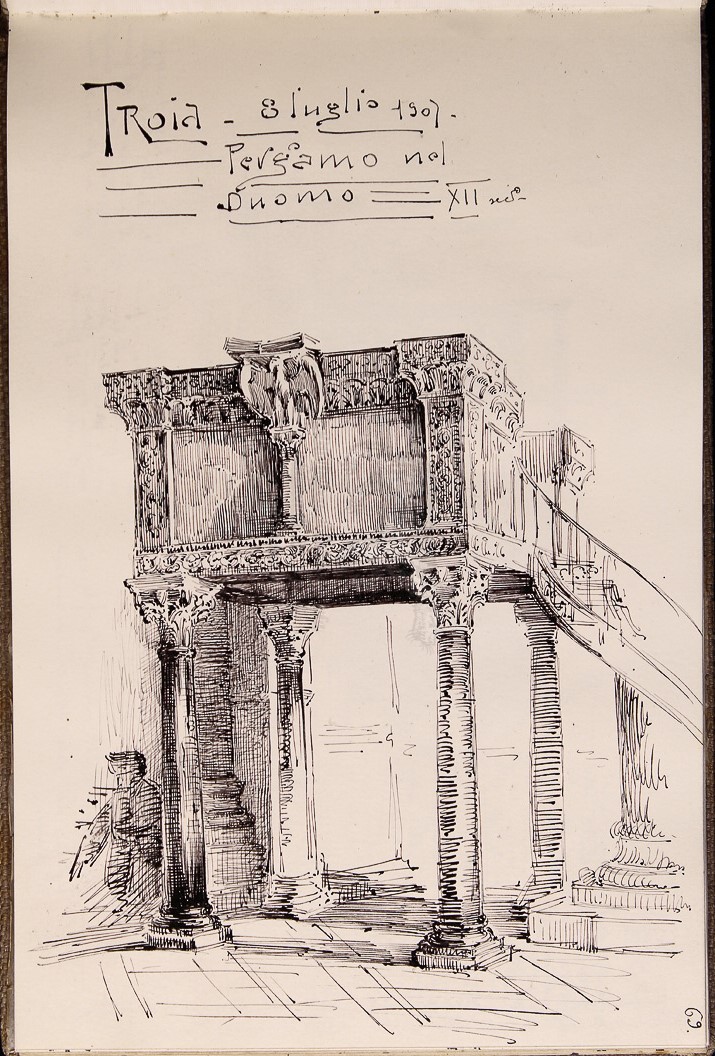 Troia - 8 luglio 1907.
Pergamo nel
Duomo XII sec°
69.